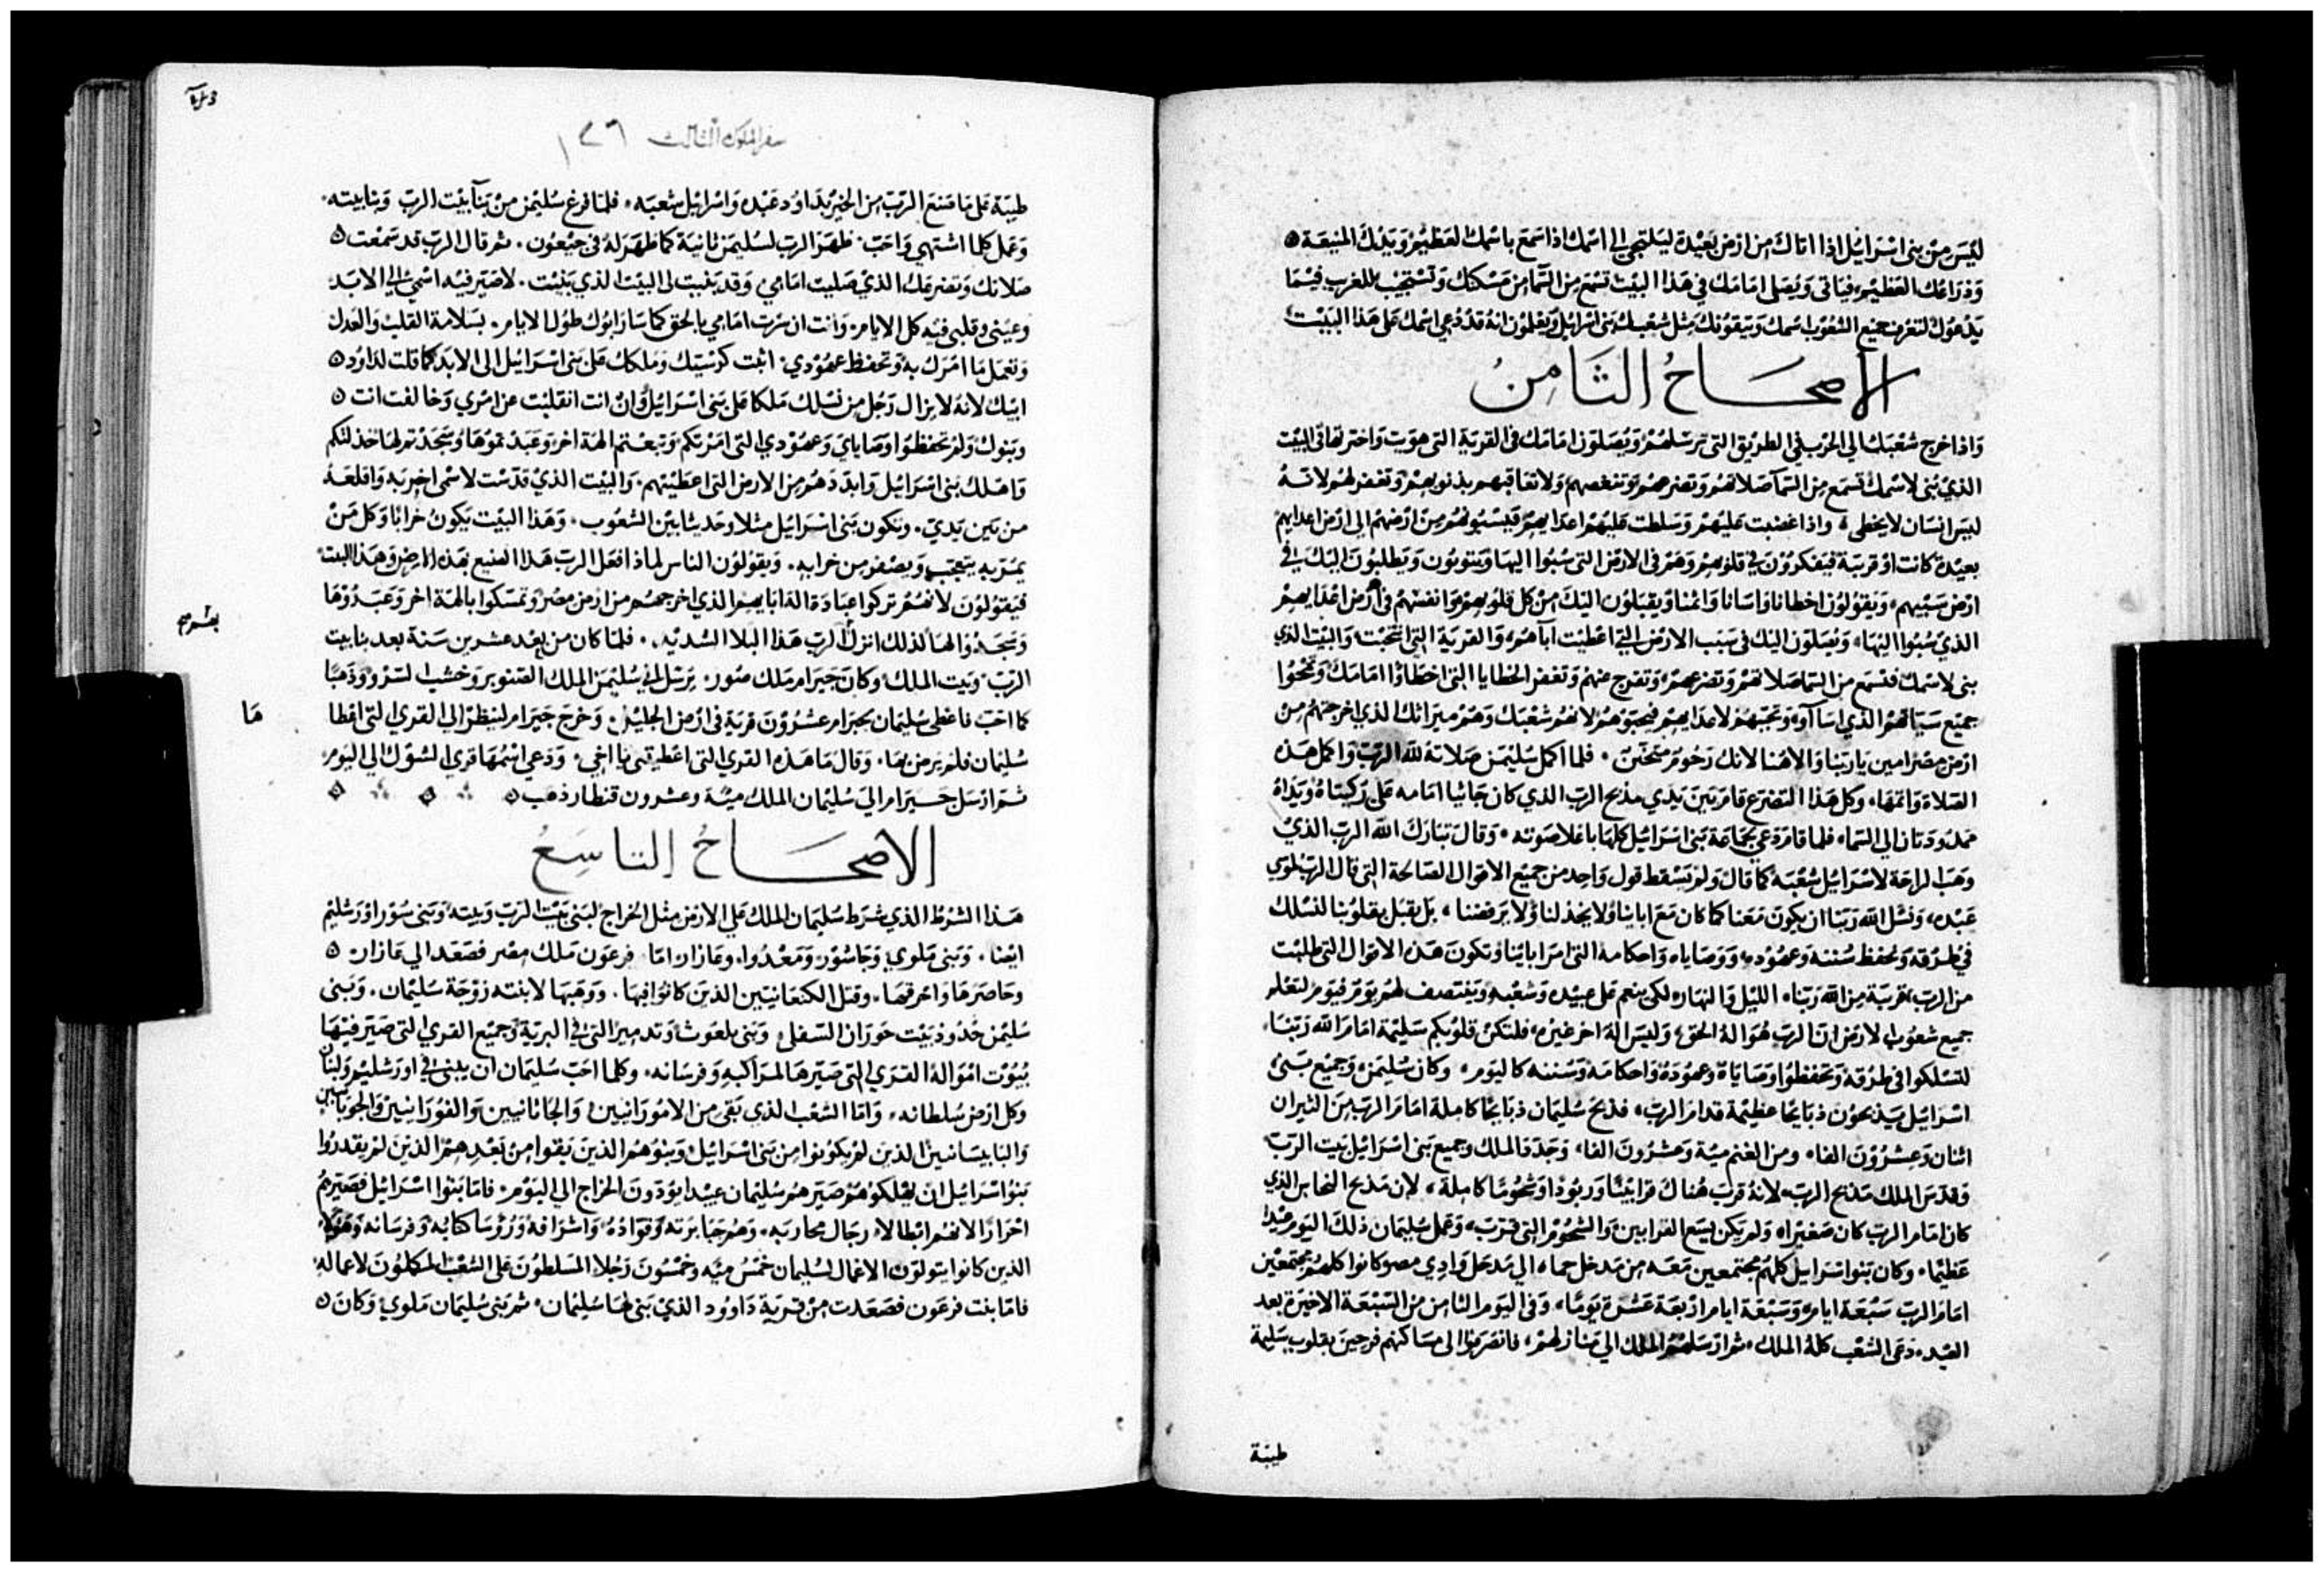 ليس من بني اسرايل اذا اتاك من ارض بعيدة ليلتجي الى اسمك اذا سمع باسمك العظيم ويدك المنيعة
وذراعك العظيم فياتي ويصلي امامك في هذا البيت تسمع من السما من مسكنك وتستجيب للغريب فيما
يدعوك لتعرف جميع الشعوب اسمك ويتقونك مثل شعبك بني اسرايل ويعلمون انه قد دعي اسمك على هذا البيت
الاصحاح الثامن
واذا خرج شعبك الي الحرب في الطريق التي ترسلهم ويصلون امامك في القرية التي هويت واخترتها في البيت
الذي بني لاسمك تسمع من السما صلاتهم وتضرعهم وتنغصهم ولا تعاقبهم بذنوبهم وتغفر لهم لانه
ليس انسان لا يخطي واذا غضبت عليهم وسلطت عليهم اعدايهم فيسبونهم من ارضهم الى ارض اعدايهم
بعيدة كانت او قريبة فيفكرون في قلوبهم وهم في الارض التي سبوا اليها ويتوبون ويطلبون اليك في
ارض سبيهم ويقولون اخطانا واسانا واثمنا ويقبلون اليك من كل قلوبهم وانفسهم في ارض اعدايهم
الذي سبوا اليها ويصلون اليك في سبب الارض التي اعطيت اباهم والقرية التي انتخبت والبيت الذي
بني لاسمك فتسمع من السما صلاتهم وتضرعهم وتفرج عنهم وتغفر الخطايا التي اخطاوا امامك وتمحوا
جميع سياتهم الذي اساآو وتحببهم لاعدايهم فيحبوهم لانهم شعبك وهم ميراثك الذي اخرجتهم من
ارض مصر امين يا ربنا والاهنا لانك رحوم متحنن فلما اكمل سليمن صلاته لله الرب واكمل هذه
الصلاة واتمها وكل هذا التضرع قام من بين يدي مذبح الرب الذي كان جاثيا امامه على ركبتاه ويداه
ممدودتان الي السما فلما قام ودعي بجماعة بني اسرايل كلها باعلا صوته وقال تبارك الله الرب الذي
وهب الراحة لاسرايل شعبه كما قال ولم تسقط قول واحد من جميع الاقوال الصالحة التي قال الرب لموسي
عبده ونسل الله ربنا ان يكون معنا كما كان مع اباينا ولا يخذلنا ولا يرفضنا بل يقبل بقلوبنا لنسلك
في طرقه ونحفظ سننه وعهوده ووصاياه واحكامه التي امر اباينا وتكون هذه الاقوال التي طلبت
من الرب قريبة من الله ربنا الليل والنهار لكي ينعم على عبيده وشعبه وينتصف لهم يوم فيوم لتعلم
جميع شعوب الارض ان الرب هو اله الحق وليس اله اخر غيره فلتكن قلوبكم سليمة امام الله ربنا
لتسلكوا في طرقه وتحفظوا وصاياه وعهوده واحكامه وسننه كاليوم وكان سليمن وجميع بني
اسرايل يذبحون ذبايحا عظيمة قدام الرب فذبح سليمان ذبايحا كاملة امام الرب من الثيران
اثنان وعشرون الفا ومن الغنم مية وعشرون الفا وجدد الملك وجميع بني اسرايل بيت الرب
وقدس الملك مذبح الرب لانه قرب هناك قرابينا وربودا وشحوما كاملة لان مذبح النحاس الذي
كان امام الرب كان صغيرا ولم يكن يسع القرابين والشحوم التي قرب وعمل سليمان ذلك اليوم عيدا
عظيما وكان بنوا اسرايل كلهم مجتمعين معه من مدخل حماه الي مدخل وادي مصر وكانوا كلهم مجتمعين
امام الرب سبعة ايام وسبعة ايام اربعة عشرة يوما وفي اليوم الثامن من السبعة الاخيرة بعد
العيد دعى الشعب كله الملك ثم ارسلهم الملك الي منازلهم فانصرفوا الى مساكنهم فرحين بقلوب سليمة
طيبة
سفر الملوك الثالث ١٢٦
طيبة على ما صنع الرب من الخير بداوود عبده واسرايل شعبه فلما فرغ سليمن من بنا بيت الرب وبنا بيته
وعمل كلما اشتهي واحب ظهر الرب لسليمن ثانية كما ظهر له في جبعون ثم قال الرب قد سمعت
صلاتك وتضرعك الذي صليت امامي وقد بنيت لي البيت الذي بنيت لاصير فيه اسمي الي الابد
وعيني وقلبي فيه كل الايام وانت ان سرت امامي بالحق كما سار ابوك طول الايام بسلامة القلب والعدل
وتعمل ما امرك به وتحفظ عهودي اثبت كرسيك وملكك على بني اسرايل الى الابد كما قلت لداود
ابيك لانه لا يزال رجل من نسلك ملكا على بني اسرايل وان انت انقلبت عن امري وخالفت انت
وبنوك ولم تحفظوا وصاياي وعهودي التي امرتكم وتبعتم الهة اخر وعبدتموها وسجدتم لها خذلتكم
واهلك بني اسرايل وابددهم من الارض التي اعطيتهم والبيت الذي قدست لاسمي اخربه واقلعه
من بين يدي ويكون بني اسرايل مثلا وحديثا بين الشعوب وهذا البيت يكون خرابا وكل من
يمر به يتعجب ويصفر من خرابه ويقولون الناس لماذا فعل الرب هذا الصنيع بهذه الارض وهذا البيت
فيقولون لانهم تركوا عبادة اله ابايهم الذي اخرجهم من ارض مصر وتمسكوا بالهة اخر وعبدوها
وسجدوا لها لذلك انزل الرب هذا البلا الشديد فلما كان من بعد عشرين سنة بعد بنا بيت
الرب وبيت الملك وكان حيرام ملك صور يرسل الي سليمن الملك الصنوبر وخشب السرو وذهبا
كما احب فاعطى سليمان لحيرام عشرون قرية في ارض الجليل وخرج حيرام لينظر الي القري التي اعطا
ها
سليمان فلم يرض بها وقال ما هذه القري التي اعطيتني يا اخي ودعي اسمها قري الشوك الي اليوم
ثم ارسل حيرام الي سليمان الملك مية وعشرون قنطار ذهب
الاصحاح التاسع
هذا الشرط الذي شرط سليمان الملك علي الارض مثل الخراج لبني بيت الرب وبيته وبني سور اورشليم
ايضا وبني ملوي وحاسور ومعدوا وعازار اما فرعون ملك مصر فصعد الي عازار
وحاصرها واحرقها وقتل الكنعانيين الذين كانوا فيها ووهبها لابنته زوجة سليمان وبنى
سليمن حدود بيت حوران السفلى وبنى بلعوث وتدمير التي في البرية وجميع القري التي صير فيها
بيوت امواله القري التي صيرها لمراكبه وفرسانه وكلما احب سليمان ان يبني في اورشليم ولبنان
وكل ارض سلطانه واما الشعب الذي بقي من الامورانيين والحاثانيين والفورانيين والحوبانيين
واليابيسانيين الذين لم يكونوا من بني اسرايل وبنوهم الذين بقوا من بعدهم الذين لم يقدروا
بنوا اسرايل ان يهلكوهم صيرهم سليمان عبيدا يودون الخراج الي اليوم فاما بنوا اسرايل فصيرهم
احرارا لانهم ابطالا رجال محاربه وهم جبابرته وقواده واشرافه وروسا كتابه وفرسانه وهولا
الذين كانوا يتولون الاعمال لسليمان خمس ميه وخمسون رجلا المسلطون على الشعب المكلون لاعماله
فاما بنت فرعون فصعدت من قرية داوود الذي بني لها سليمان ثم بني سليمان ملوي وكان